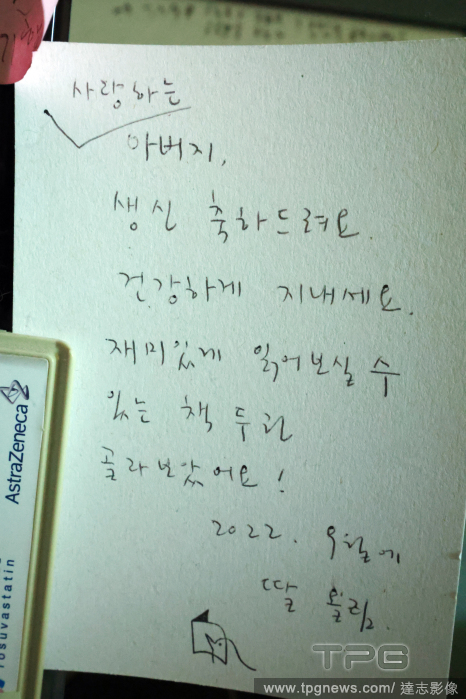 사랑하는
아버지,
생신 축하드려요.
건강하게 지내세요.
재미있게 읽어보실 수
있는 책 두권
골라보았어요!
2022. 9월에
딸
AstraZeneca
rosuvastatin
TPG
www.tpgnews.com/達志影像